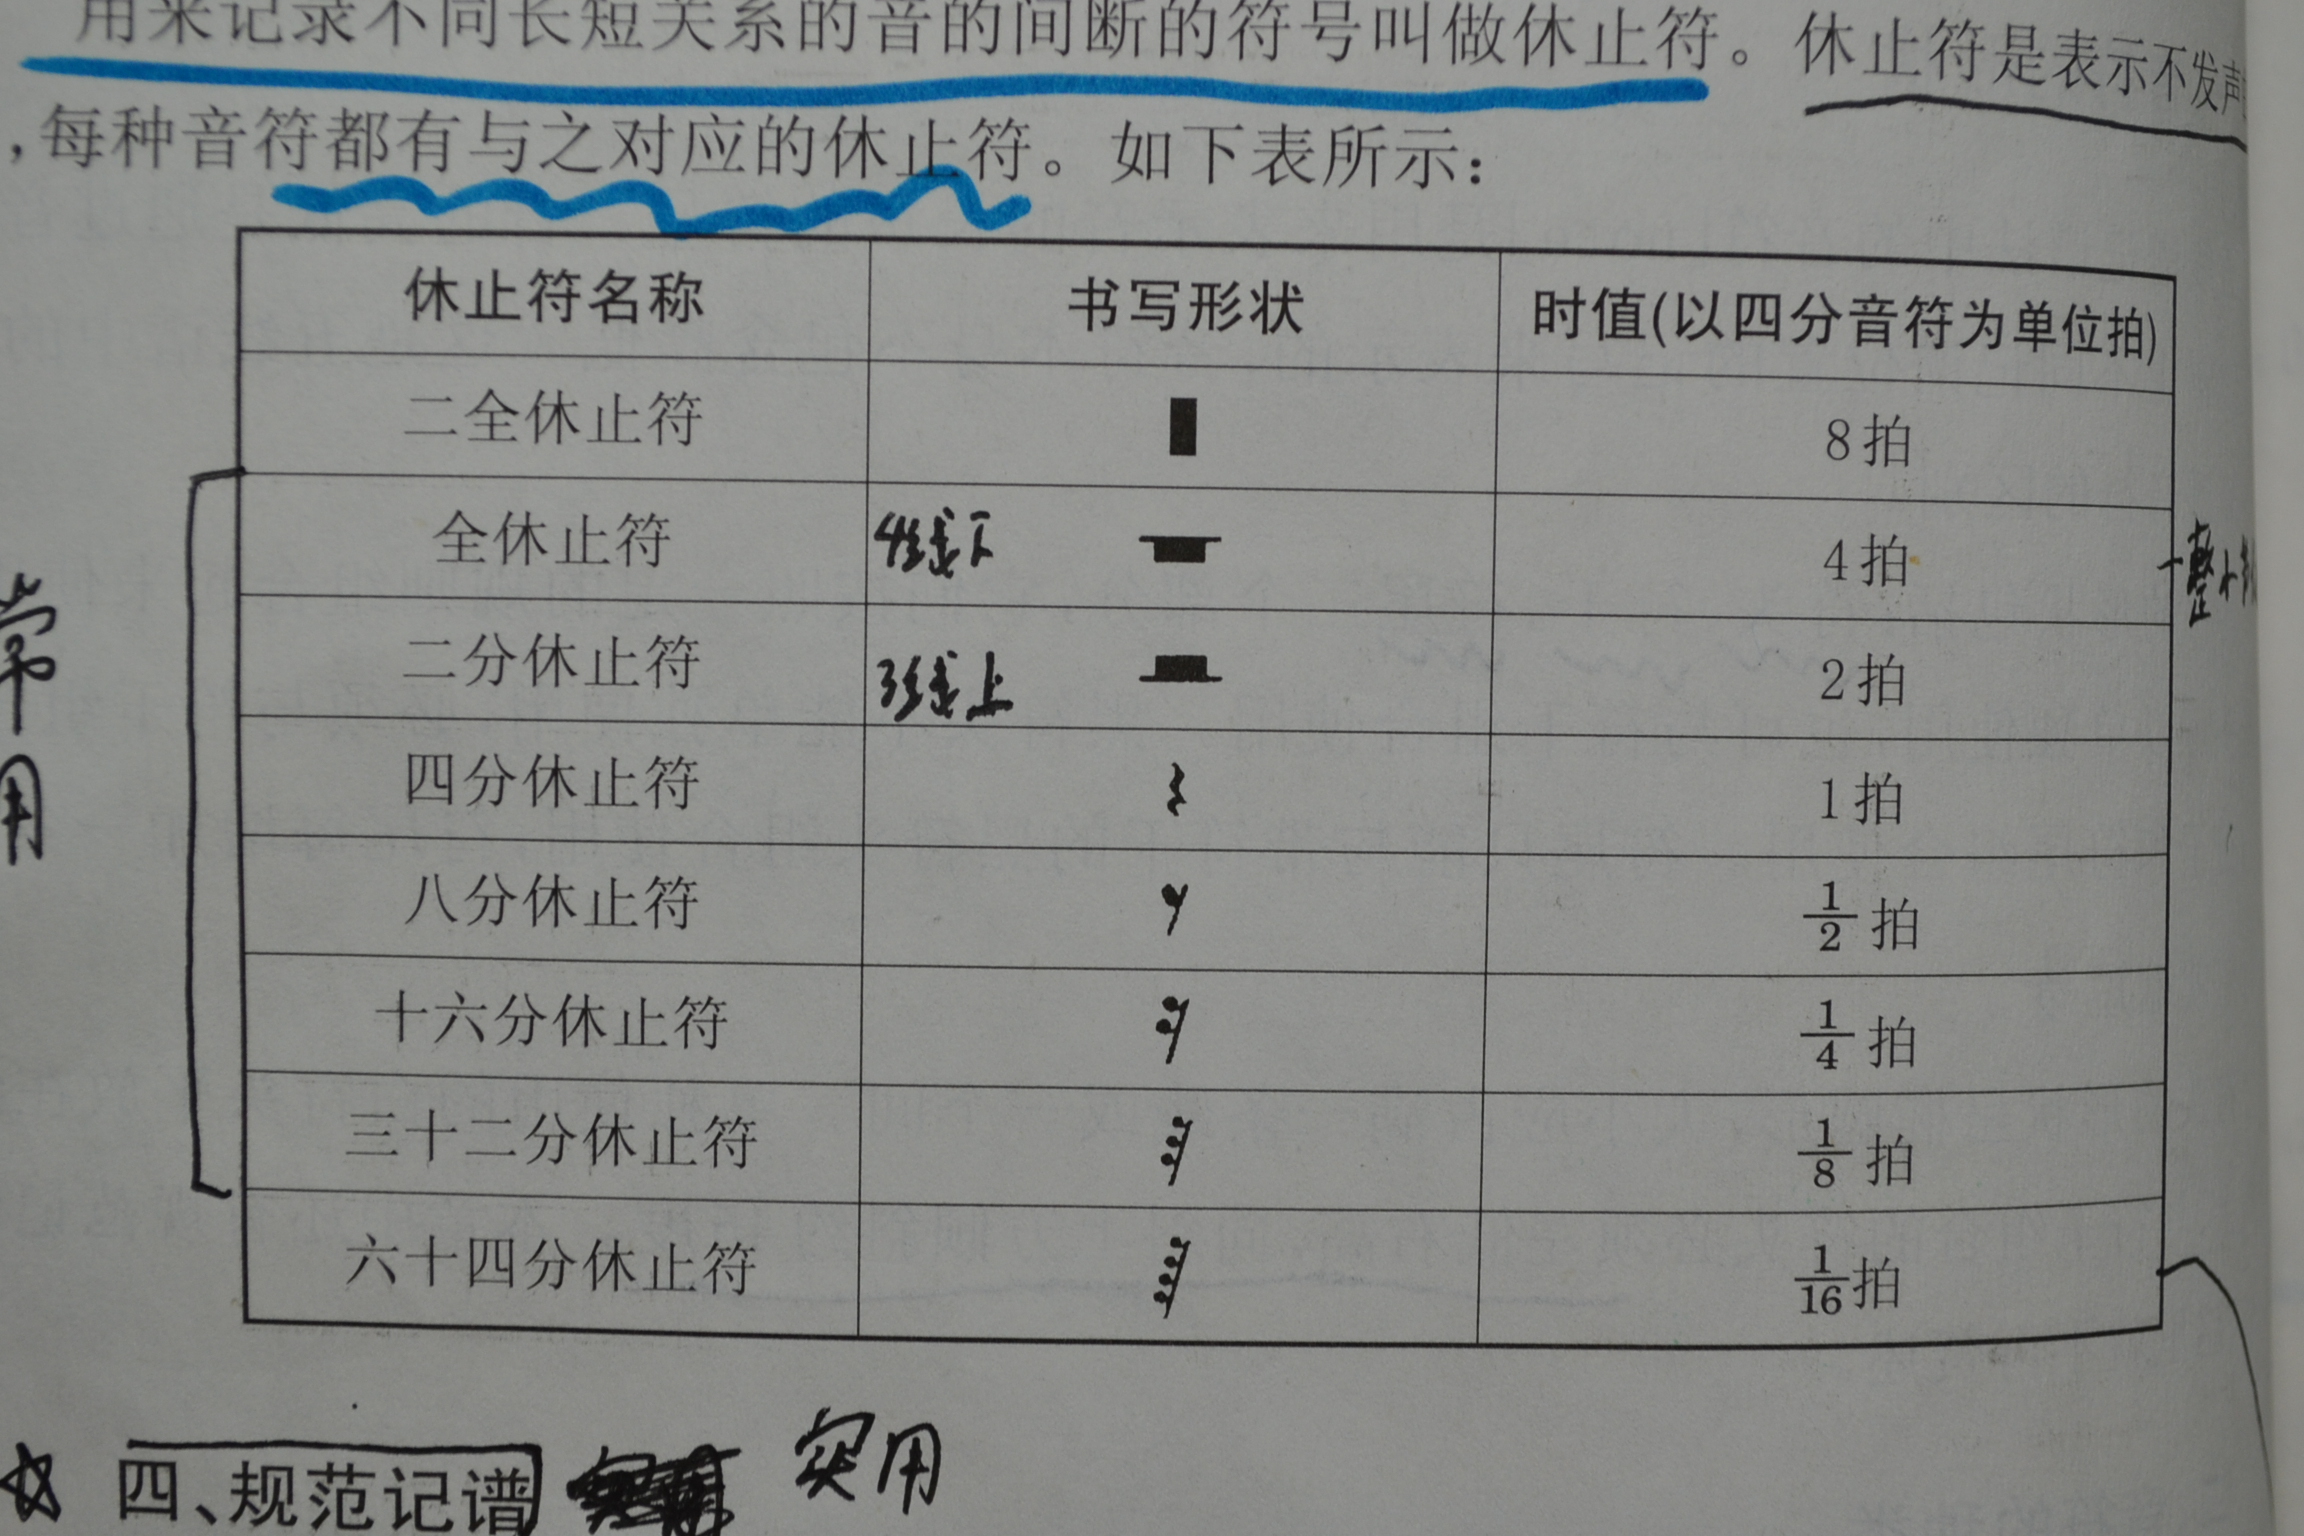 用来记录不同长短关系的音的间断的符号叫做休止符。休止符是表示不发声
,每种音符都有与之对应的休止符。如下表所示:
休止符名称 书写形状 时值(以四分音符为单位拍)
二全休止符 8拍
全休止符 4线下 4拍 整小
二分休止符 3线上 2拍
四分休止符 1拍
八分休止符 1/2拍
十六分休止符 1/4拍
三十二分休止符 1/8拍
六十四分休止符 1/16拍
常用
四、规范记谱 实用